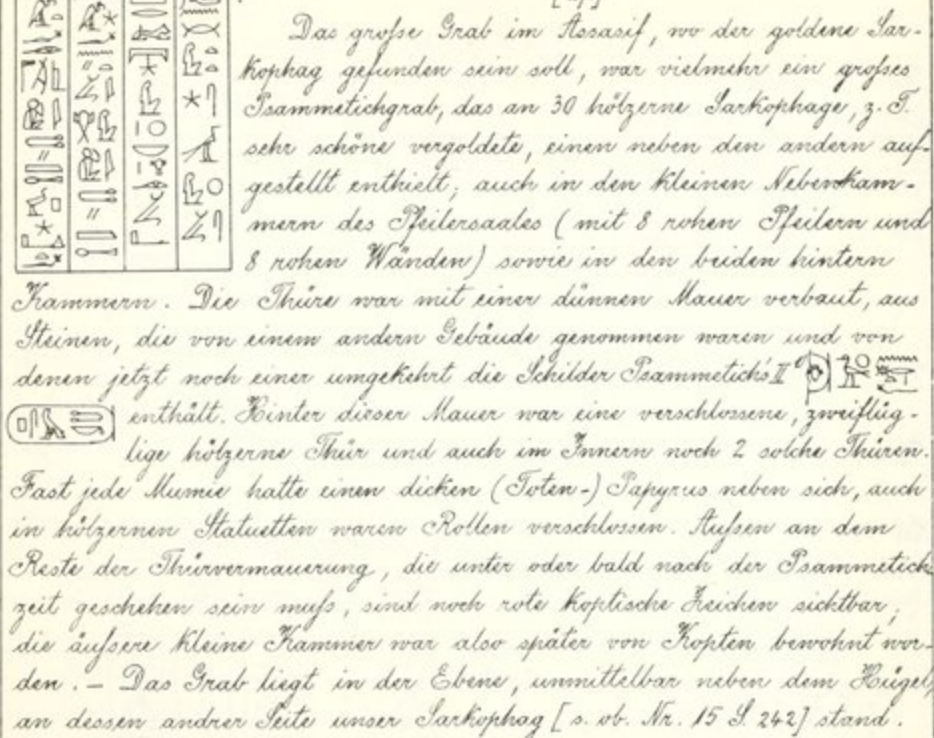 Das große Grab im Assasif, wo der goldene Sar-
kophag gefunden sein soll, war vielmehr ein großes
Psammetichgrab, das an 30 hölzerne Sarkophage, z. T.
sehr schöne vergoldete, einen neben den andern auf-
gestellt enthielt; auch in den kleinen Nebenkam-
mern des Pfeilersaales (mit 8 rohen Pfeilern und
8 rohen Wänden) sowie in den beiden hintern
Kammern. Die Thüre war mit einer dünnen Mauer verbaut, aus
Steinen, die von einem andern Gebäude genommen waren und von
denen jetzt noch einer umgekehrt die Schilder Psammetich's II
enthält. Hinter dieser Mauer war eine verschlossene, zweiflüg-
lige hölzerne Thür und auch im Innern noch 2 solche Thüren.
Fast jede Mumie hatte einen dicken (Toten-) Papyrus neben sich, auch
in hölzernen Statuetten waren Rollen verschlossen. Außen an dem
Reste der Thürvermauerung, die unter oder bald nach der Psammetich
zeit geschehen sein muß, sind noch rote koptische Zeichen sichtbar;
die äußere kleine Kammer war also später von Kopten bewohnt wor-
den. — Das Grab liegt in der Ebene, unmittelbar neben dem Hügel,
an dessen andrer Seite unser Sarkophag [s. ob. Nr. 15 S. 242] stand.